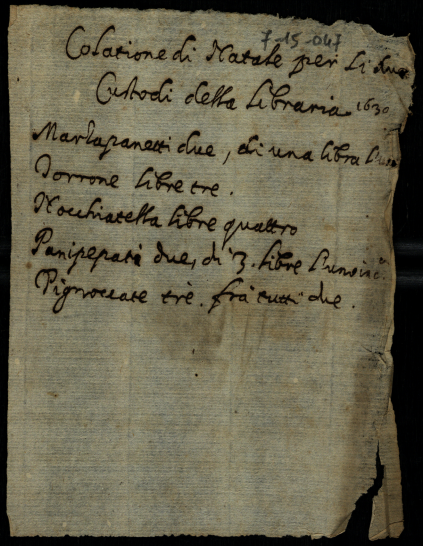 7-15-047
Colatione di Natale per li due
Custodi della libraria. 1630
Marzapanetti due, di una libra l'uno
Torrone libre tre.
Nocchiatella libre quattro
Panpepati due, di 3. libre l'uno in c.ª
Pignoccate trè. frà tutti due.